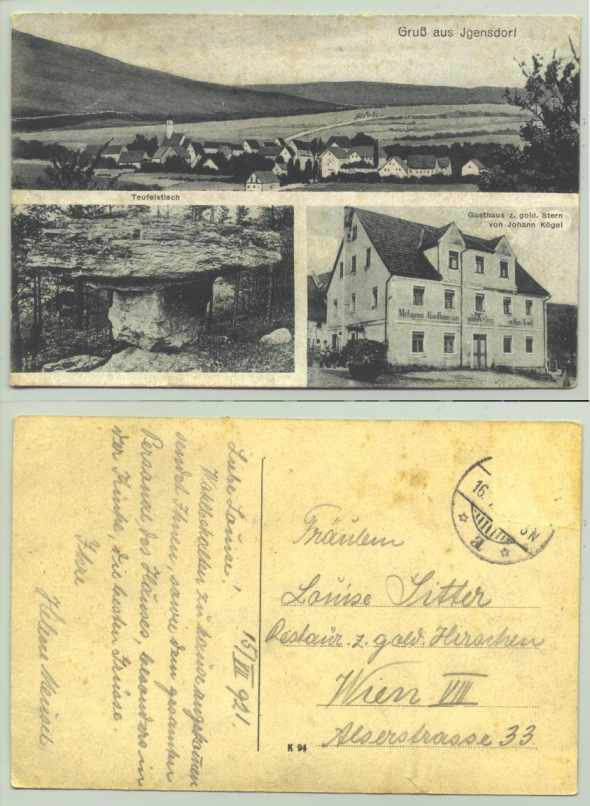 Gruß aus Jgensdorf
Teufelstisch
Gasthaus z. gold. Stern
von Johann Kögel
15/VII 921.
Liebe Louise!,
Wohlbehalten zu Hause angekommen
sendet Ihnen, sowie dem gesamten
Personal des Hauses, besonders in
der Küche, die besten Grüsse.
Ihre
Helene
16.
a
Fräulein
Louise Sitter
Restaur. z. gold. Hirschen
Wien VIII
Alserstrasse 33.
K 94